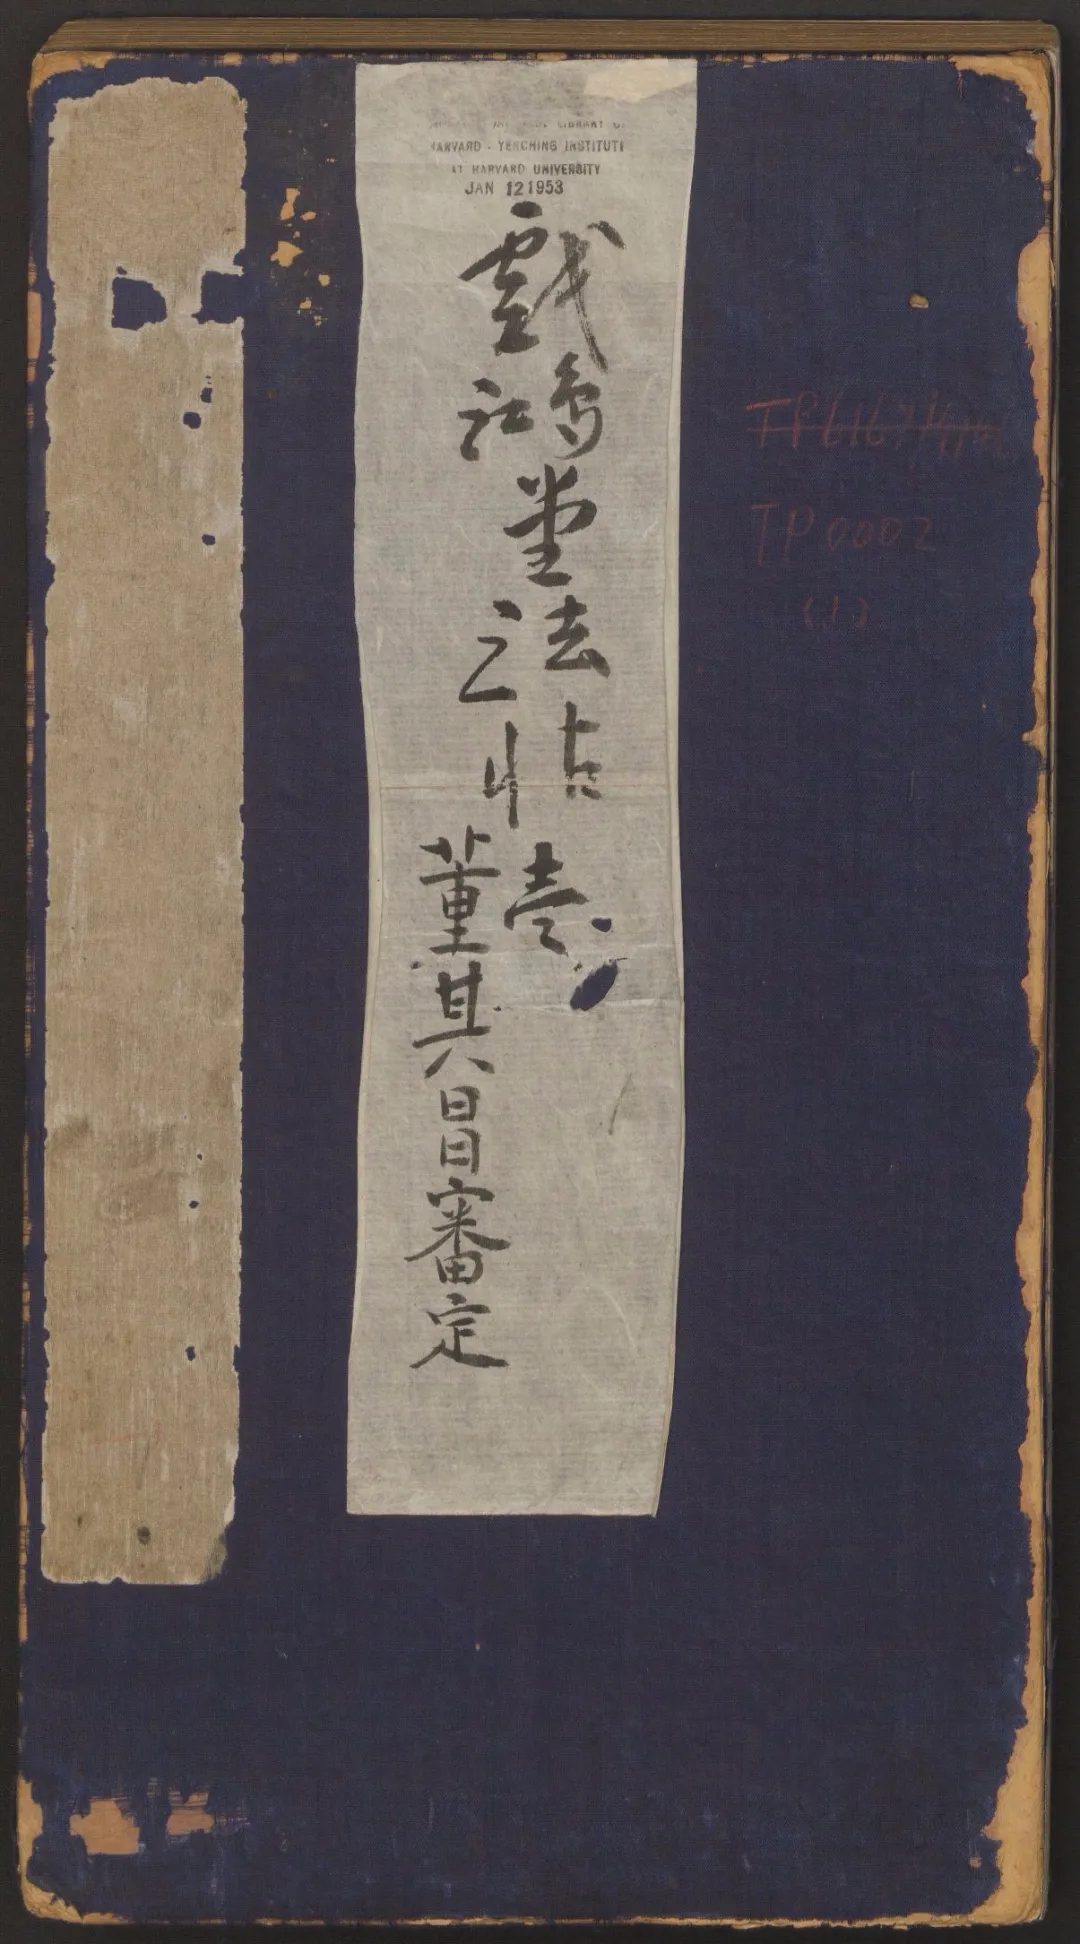 LIBRARY
HARVARD - YENCHING INSTITUTE
AT HARVARD UNIVERSITY
JAN 12 1953
戲鴻堂法帖壹
董其昌審定
TP 0002
(1)